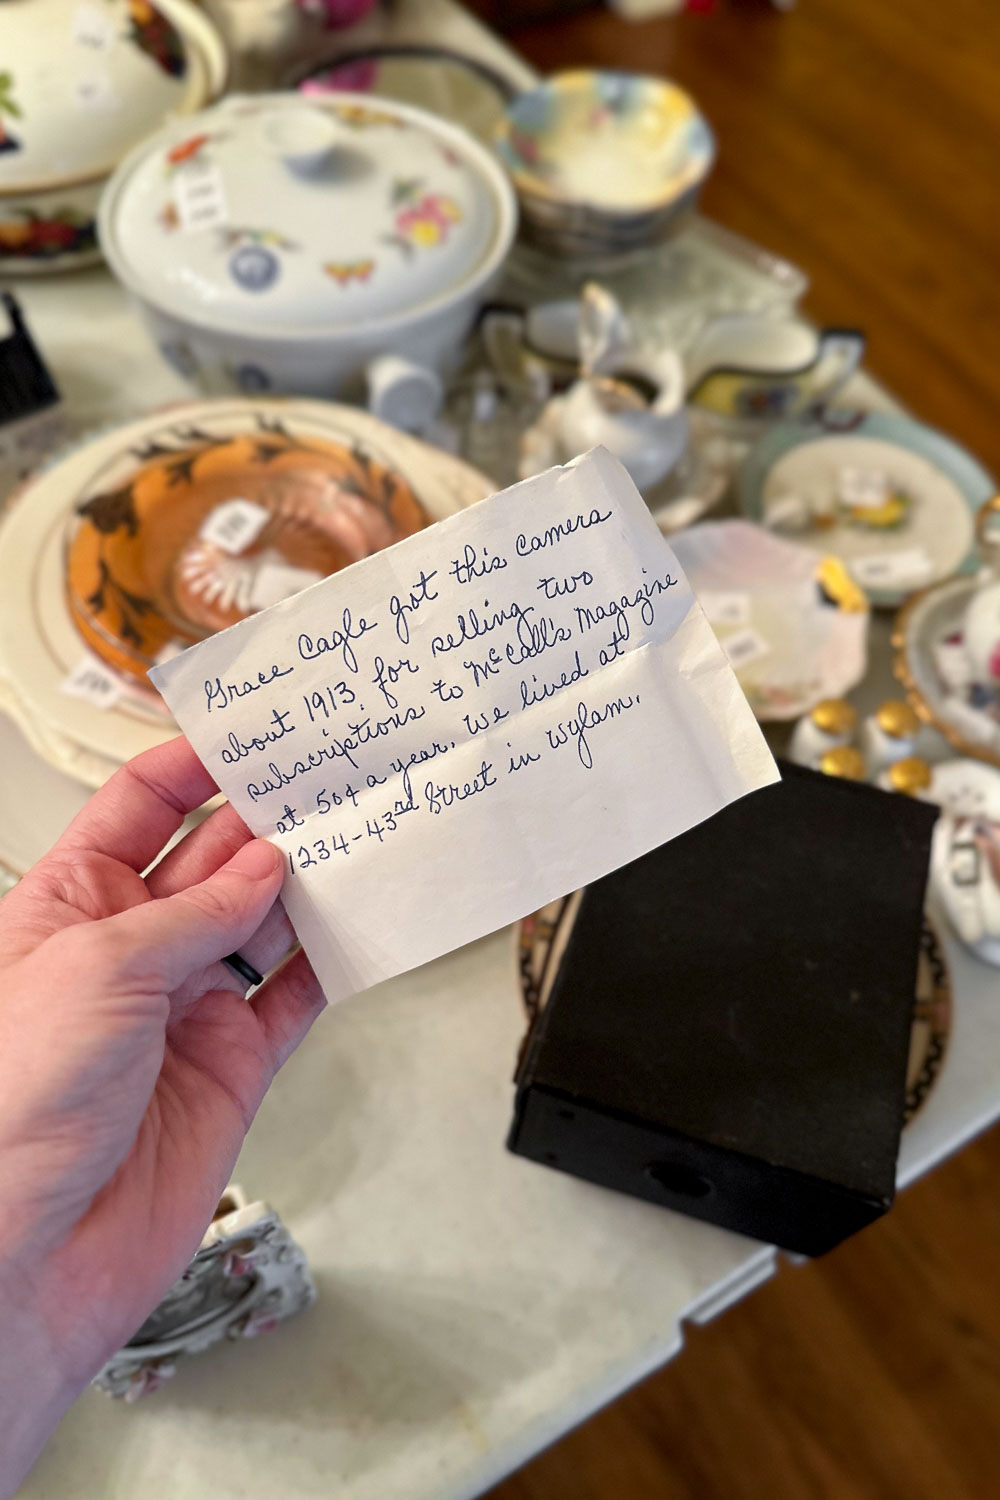 Grace Cagle got this camera
about 1913 for selling two
subscriptions to McCall's Magazine
at 50¢ a year. We lived at
1234-43rd Street in Wylam.